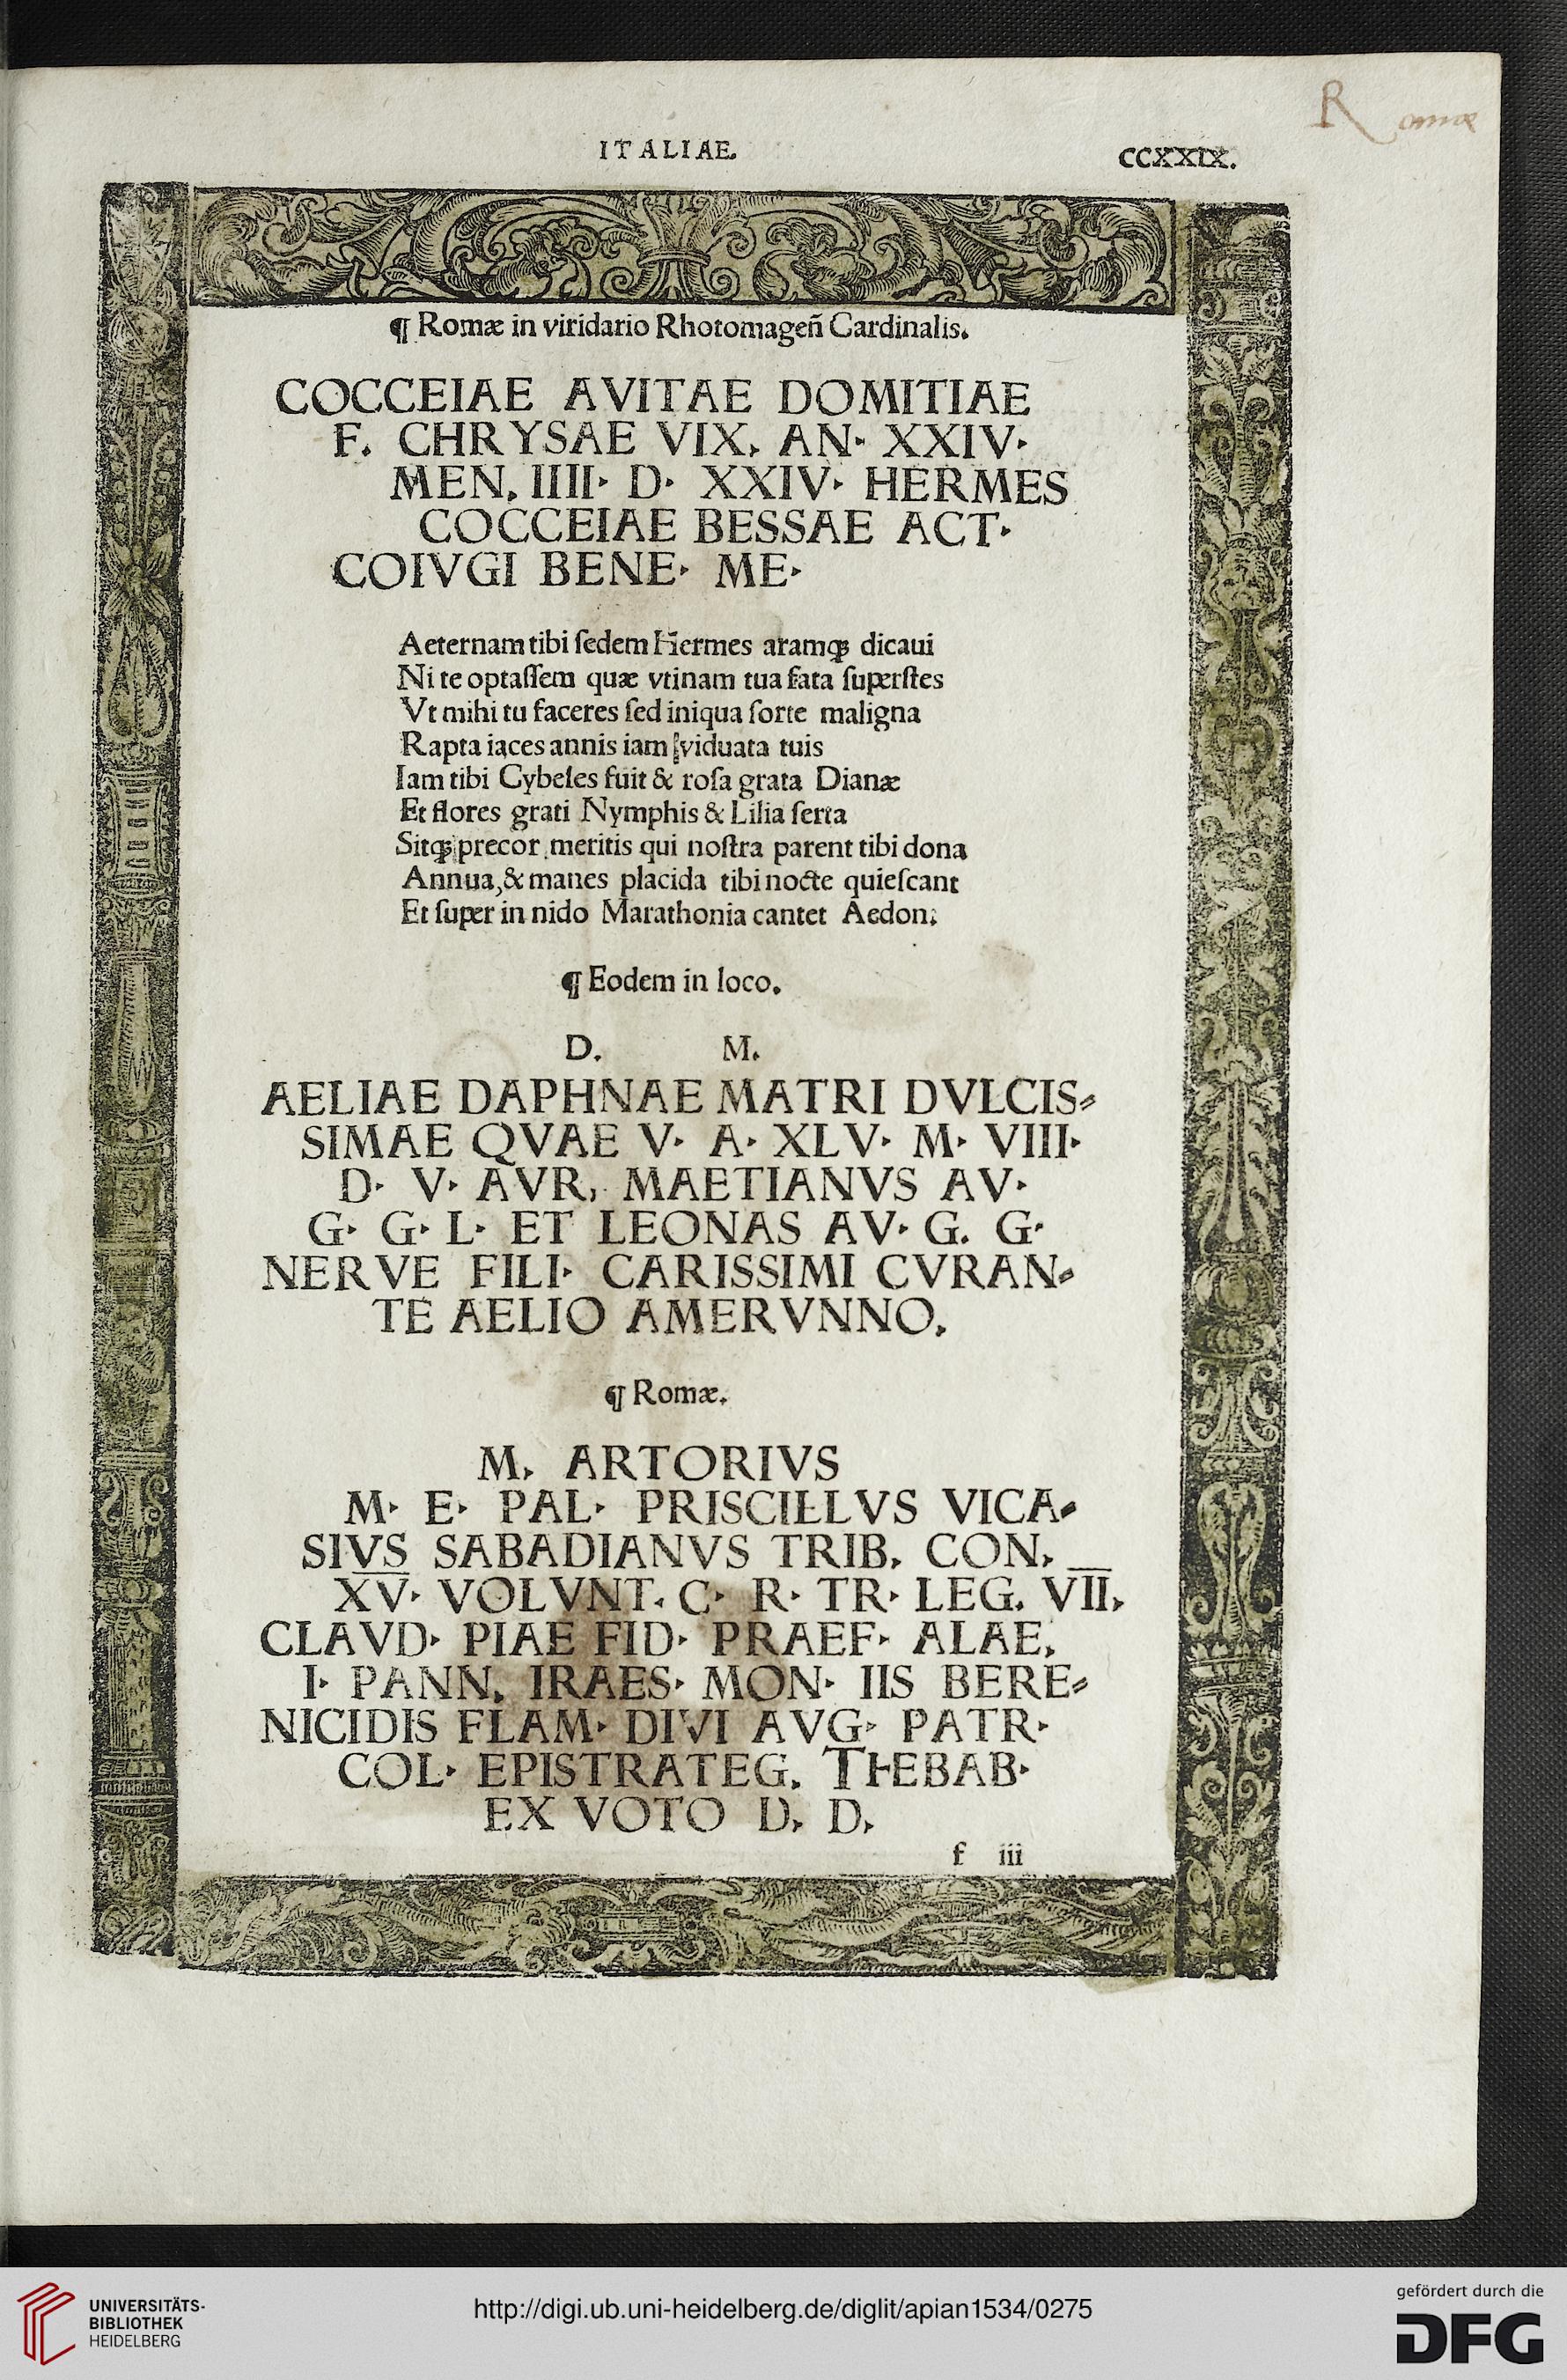 Romæ
ITALIAE.
CCXXIX.
¶ Romæ in viridario Rhotomageñ Cardinalis.
COCCEIAE AVITAE DOMITIAE
F. CHRYSAE VIX. AN· XXIV·
MEN. IIII· D· XXIV· HERMES
COCCEIAE BESSAE ACT·
COIVGI BENE· ME·
Aeternam tibi ſedem Hermes aramqꝫ dicaui
Ni te optaſſem quæ vtinam tua fata ſuperſtes
Vt mihi tu faceres ſed iniqua ſorte maligna
Rapta iaces annis iam viduata tuis
Iam tibi Cybeles fuit & roſa grata Dianæ
Et flores grati Nymphis & Lilia ſerta
Sitqꝫ precor meritis qui noſtra parent tibi dona
Annua, & manes placida tibi nocte quieſcant
Et ſuper in nido Marathonia cantet Aedon.
¶ Eodem in loco.
D. M.
AELIAE DAPHNAE MATRI DVLCIS⸗
SIMAE QVAE V· A· XLV· M· VIII·
D· V· AVR. MAETIANVS AV·
G· G· L· ET LEONAS AV· G. G·
NERVE FILI· CARISSIMI CVRAN⸗
TE AELIO AMERVNNO.
¶ Romæ.
M. ARTORIVS
M· E· PAL· PRISCILLVS VICA⸗
SIVS SABADIANVS TRIB. CON.
X̅V̅· VOLVNT. C· R· TR· LEG. V̅I̅I̅.
CLAVD· PIAE FID· PRAEF· ALAE.
I· PANN. IRAES· MON· IIS BERE⸗
NICIDIS FLAM· DIVI AVG· PATR·
COL· EPISTRATEG. THEBAB·
EX VOTO D. D.
f iii
UNIVERSITÄTS-
BIBLIOTHEK
HEIDELBERG
http://digi.ub.uni-heidelberg.de/diglit/apian1534/0275
gefördert durch die
DFG